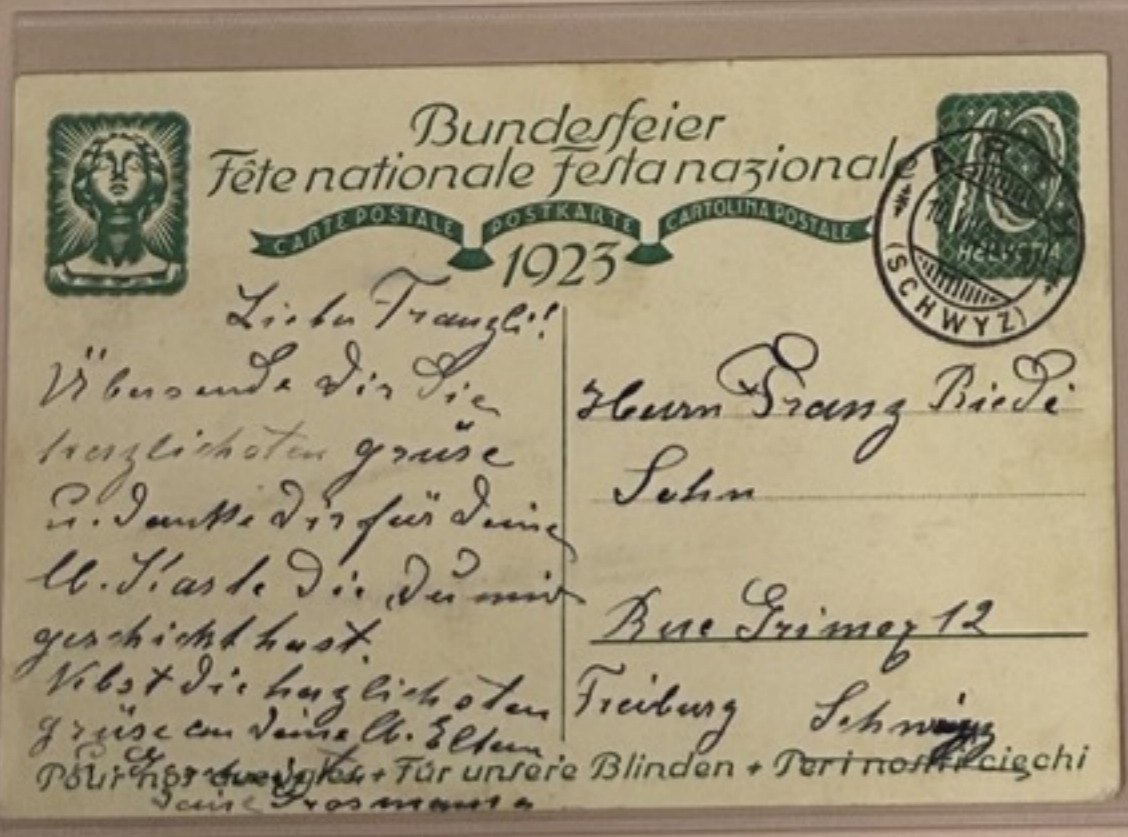 Bundesfeier
Fête nationale Festa nazionale
CARTE POSTALE POSTKARTE CARTOLINA POSTALE
1923
10
HELVETIA
ARTH
(SCHWYZ)
Lieber Franzli!
Übersende Dir die
herzlichsten grüse
u. danke Dir für deine
lb. Karte die Du mir
geschickt hast.
Nebst die herzlichsten
grüse an deine lb. Eltern
deine Grosmama
Herrn Franz Riedi
Sohn
Rue Grimoz 12
Freiburg Schweiz
Pour nos aveugles + Für unsere Blinden + Per i nostri ciechi